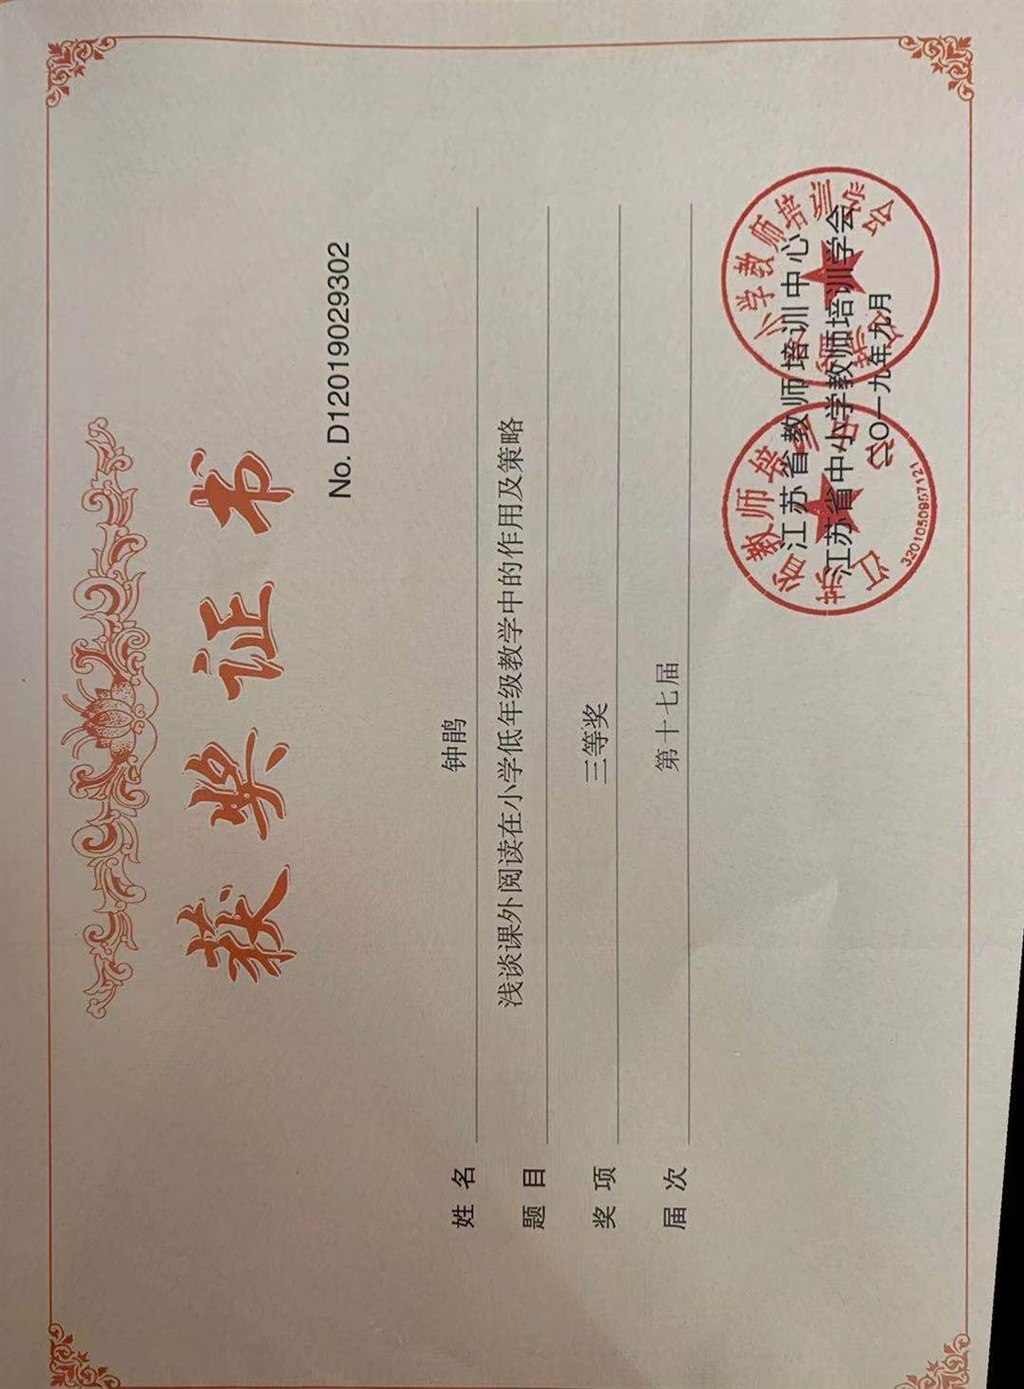 获奖证书
No. D12019029302
姓 名 钟鹃
题 目 浅谈课外阅读在小学低年级教学中的作用及策略
奖 项 三等奖
届 次 第十七届
江苏省教师培训中心
江苏省中小学教师培训学会
二〇一九年九月
江苏省教师培训中心
3201050967121
小学教师培训
会